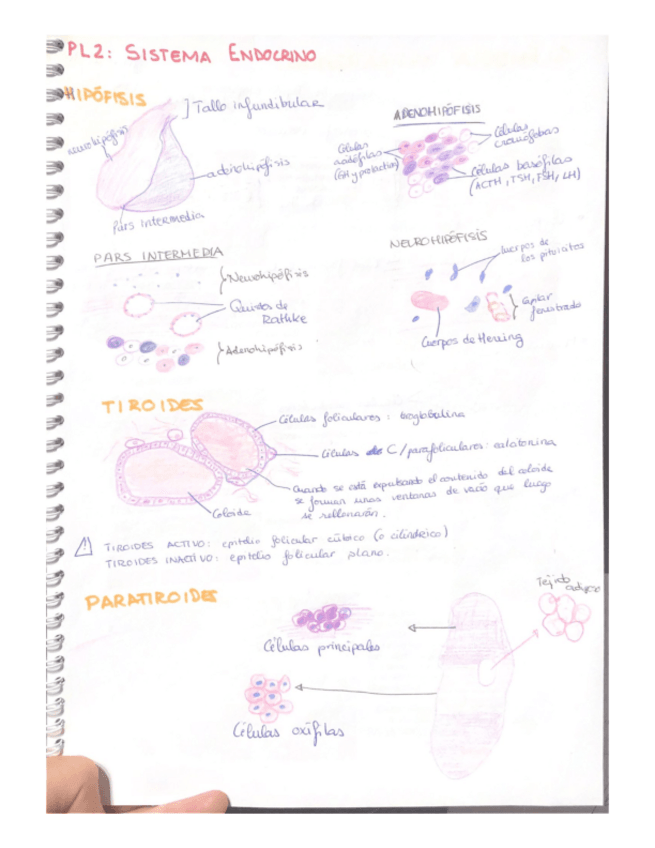 PL2: SISTEMA ENDOCRINO
HIPÓFISIS
Tallo infundibular
neurohipófisis
adenohipófisis
Pars intermedia
ADENOHIPÓFISIS
Células acidófilas
(GH y prolactina)
Células
cromófobas
Células basófilas
(ACTH, TSH, FSH, LH)
PARS INTERMEDIA
Neurohipófisis
Quistes de
Rathke
Adenohipófisis
NEUROHIPÓFISIS
Cuerpos de
los pituicitos
Capilar
fenestrado
Cuerpos de Herring
TIROIDES
Células foliculares: tiroglobulina
Células C/parafoliculares: calcitonina
Cuando se está expulsando el contenido del coloide
se forman unas ventanas de vacío que luego
se rellenarán.
Coloide
TIROIDES ACTIVO: epitelio folicular cúbico (o cilíndrico)
TIROIDES INACTIVO: epitelio folicular plano.
PARATIROIDES
Tejido
adiposo
Células principales
Células oxífilas